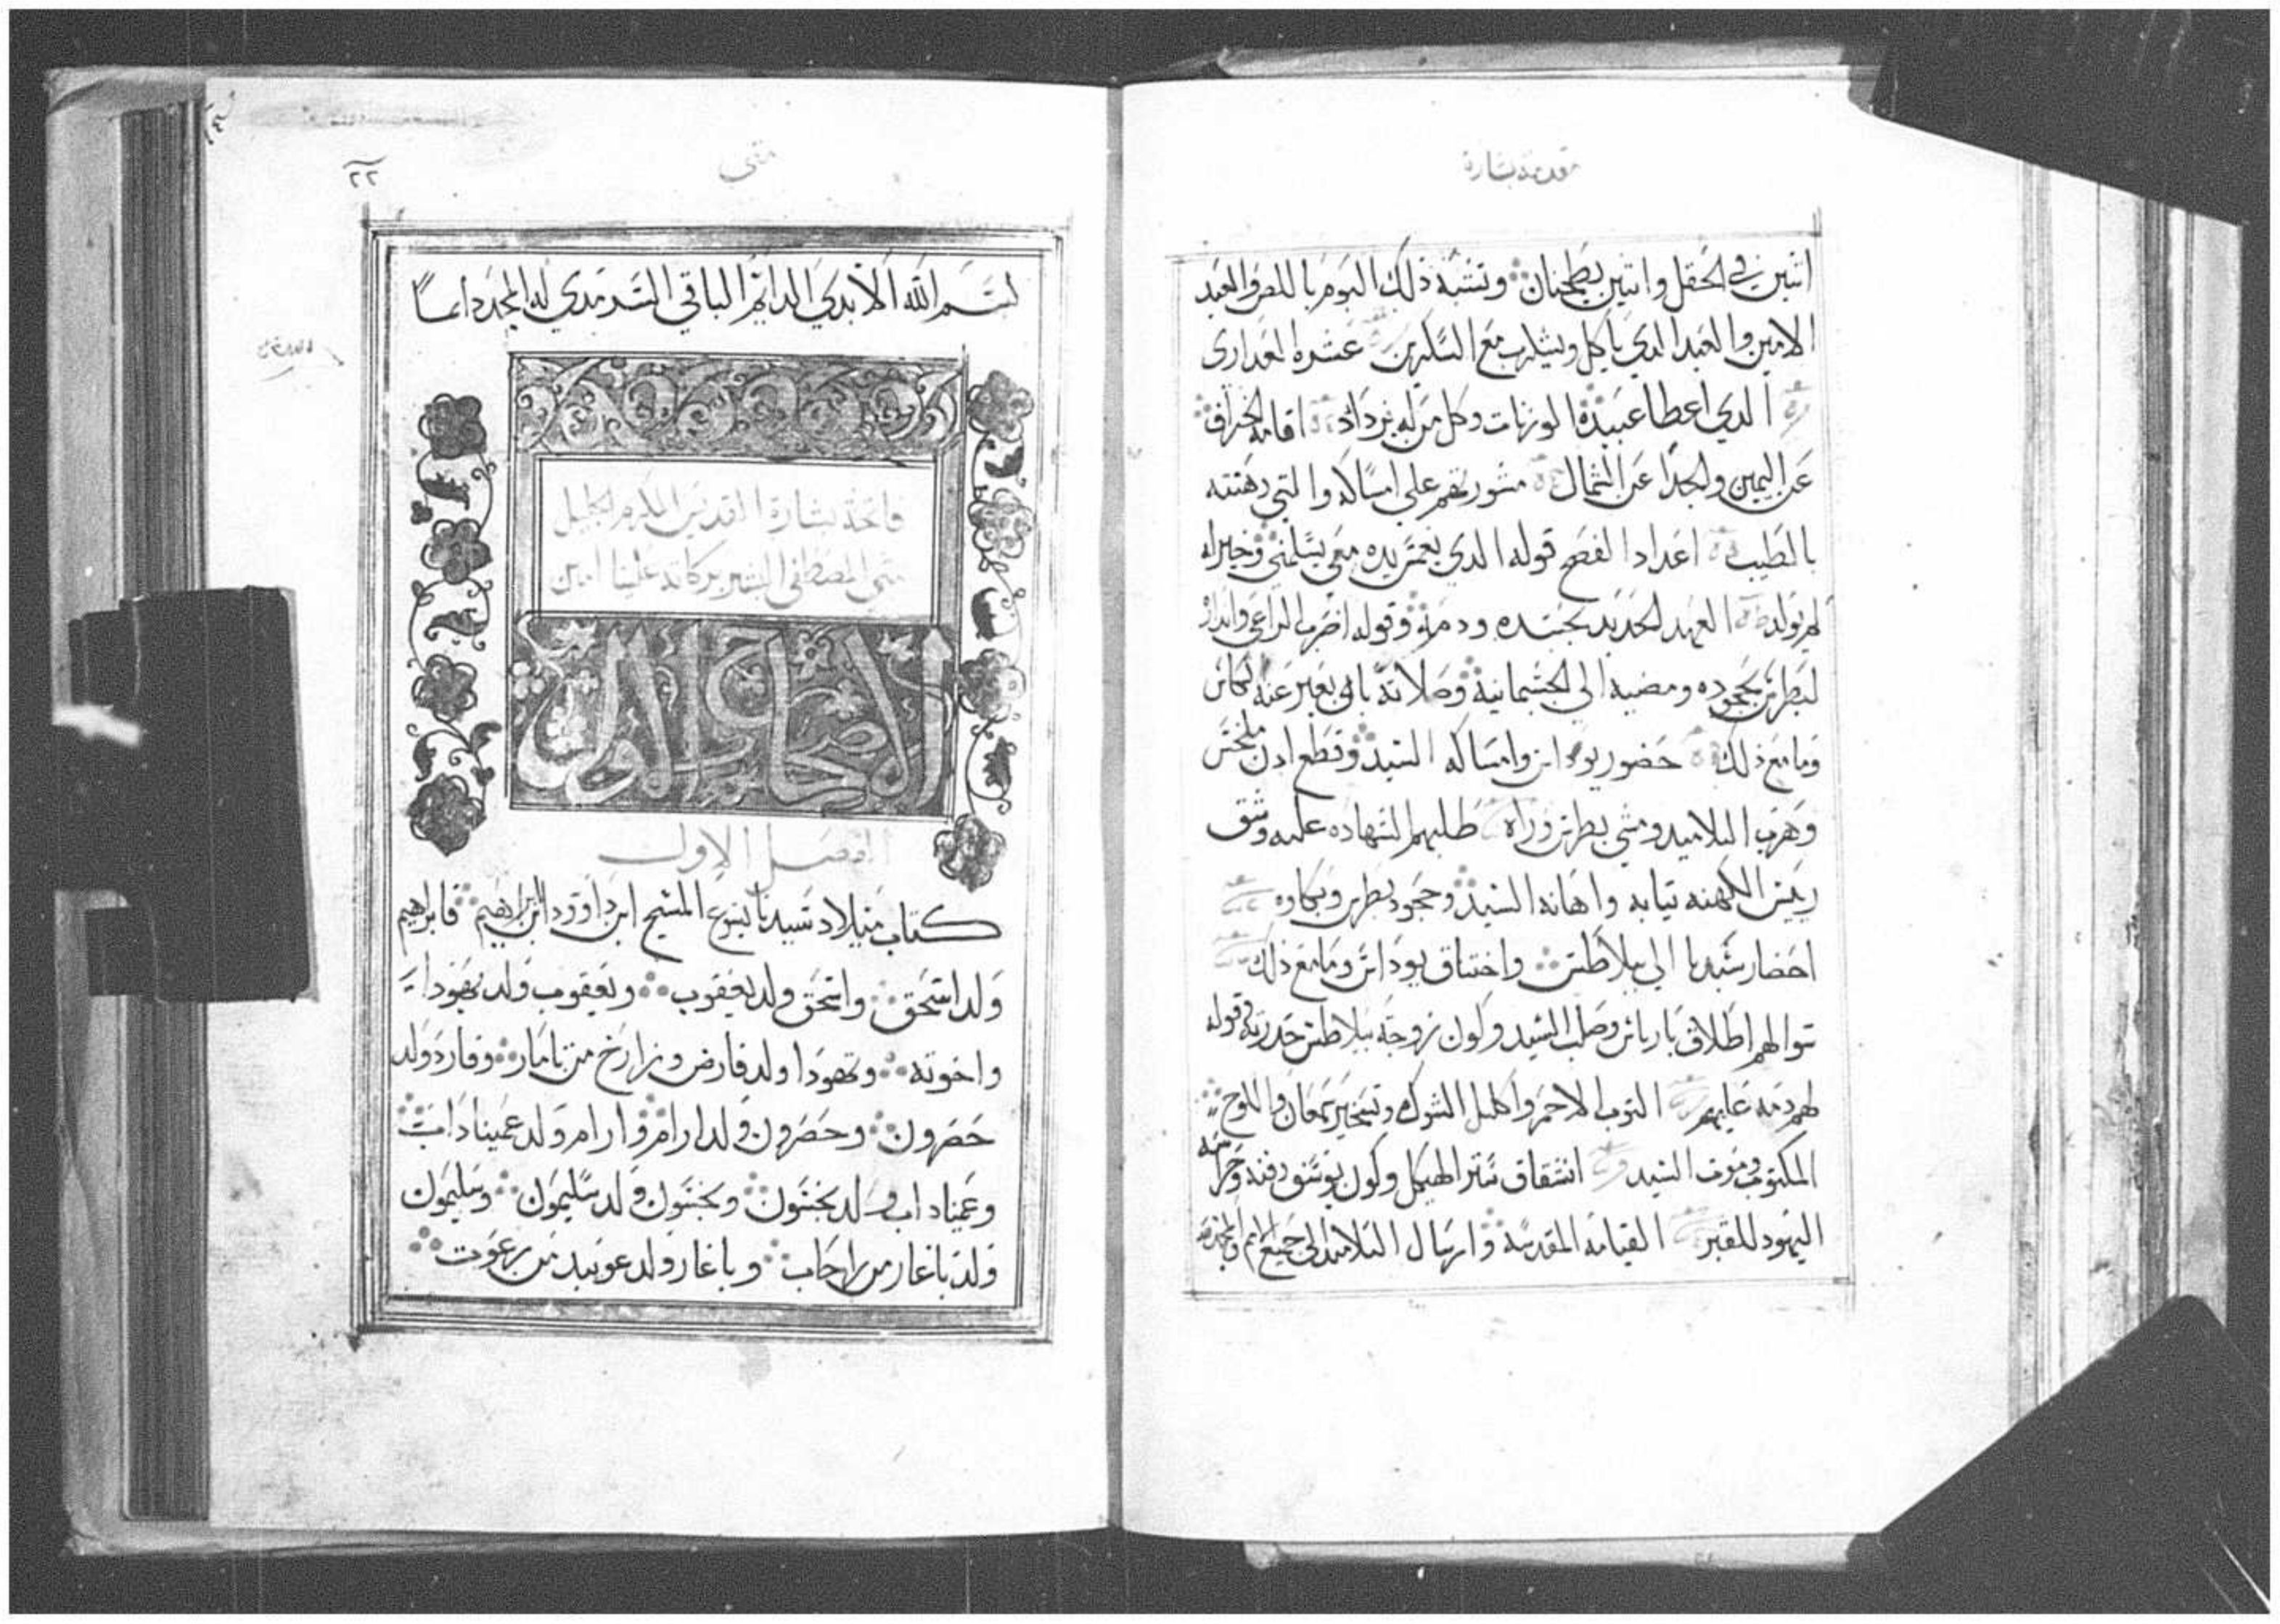 مقدمة بشارة
اتنين في الحقل واتنين يطحنان وتشبه ذلك اليوم باللص والعبد
الامين والعبد الدي ياكل ويشرب مع السكرين عشرة العدارى
الدي اعطا عبيده الوزنات وكل من له يزداد اقامة الخراف
عن اليمين والجدا عن الشمال مشورتهم على امساكه والتي دهنته
بالطيب اعداد الفصح قوله الدي يغمس يده معي يسلمني وخير له
لو لم يولد العهد الجديد بجسده ودمه وقوله اضرب الراعي وانداره
لبطرس بجحوده ومضيه الي الجسمانية وصلاته بان يعبر عنه الكاس
وما مع ذلك حضور يوداس وامساكه السيد وقطع ادن ملخس
وهرب التلاميد ومشي بطرس وراه طلبهم الشهاده عليه وشق
رييس الكهنه تيابه واهانه السيد وجحود بطرس وبكاوه
احضار سيدنا الي بيلاطس واختناق يوداس وما مع ذلك
سوالهم اطلاق باراباس وصلب السيد وكون زوجة بيلاطس حدرته قوله
لهم دمه عليهم التوب الاحمر واكليل الشوك وتسخير سمعان واللوح
المكتوب وموت السيد انشقاق ستر الهيكل وكون يوسف دفنه وحراسه
اليهود للقبر القيامه المقدسه وارسال التلاميد الي جميع الامم
متي
٢٢
بسم الله الابدي الدايم الباقي السرمدي له المجد دايما
فاتحة بشارة القديس المكرم الجليل
متي المصطفى البشير بركاته علينا امين
الاصحاح الاول
الفصل الاول
كتاب ميلاد سيدنا يسوع المسيح ابن داوود ابن ابراهيم فابراهيم
ولد اسحق واسحق ولد يعقوب ويعقوب ولد يهودا
واخوته ويهودا ولد فارض وزارخ من تامار وفارد ولد
حصرون وحصرون ولد ارام وارام ولد عميناداب
وعميناداب ولد نحشون ونحشون ولد سليمون وسليمون
ولد باغار من راحاب وباغار ولد عوبيد من رعوت